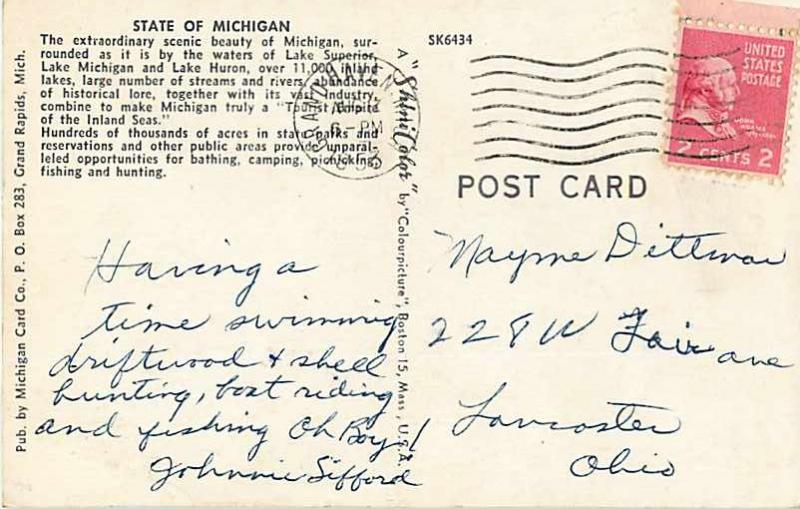 STATE OF MICHIGAN
The extraordinary scenic beauty of Michigan, sur-
rounded as it is by the waters of Lake Superior,
Lake Michigan and Lake Huron, over 11,000 inland
lakes, large number of streams and rivers, abundance
of historical lore, together with its vast industry,
combine to make Michigan truly a "Tourist Empire
of the Inland Seas."
Hundreds of thousands of acres in state parks and
reservations and other public areas provide unparal-
leled opportunities for bathing, camping, picnicking,
fishing and hunting.
Pub. by Michigan Card Co., P. O. Box 283, Grand Rapids, Mich.
A "ShiniColor" by "Colourpicture", Boston 15, Mass., U.S.A.
SK6434
UNITED
STATES
POSTAGE
JOHN
ADAMS
2 CENTS 2
PM
POST CARD
Having a
time swimming
driftwood + shell
hunting, boat riding
and fishing Oh Boy!
Johnnie Sifford
Mayme Dittmar
228 W Fair ave
Lancaster
Ohio